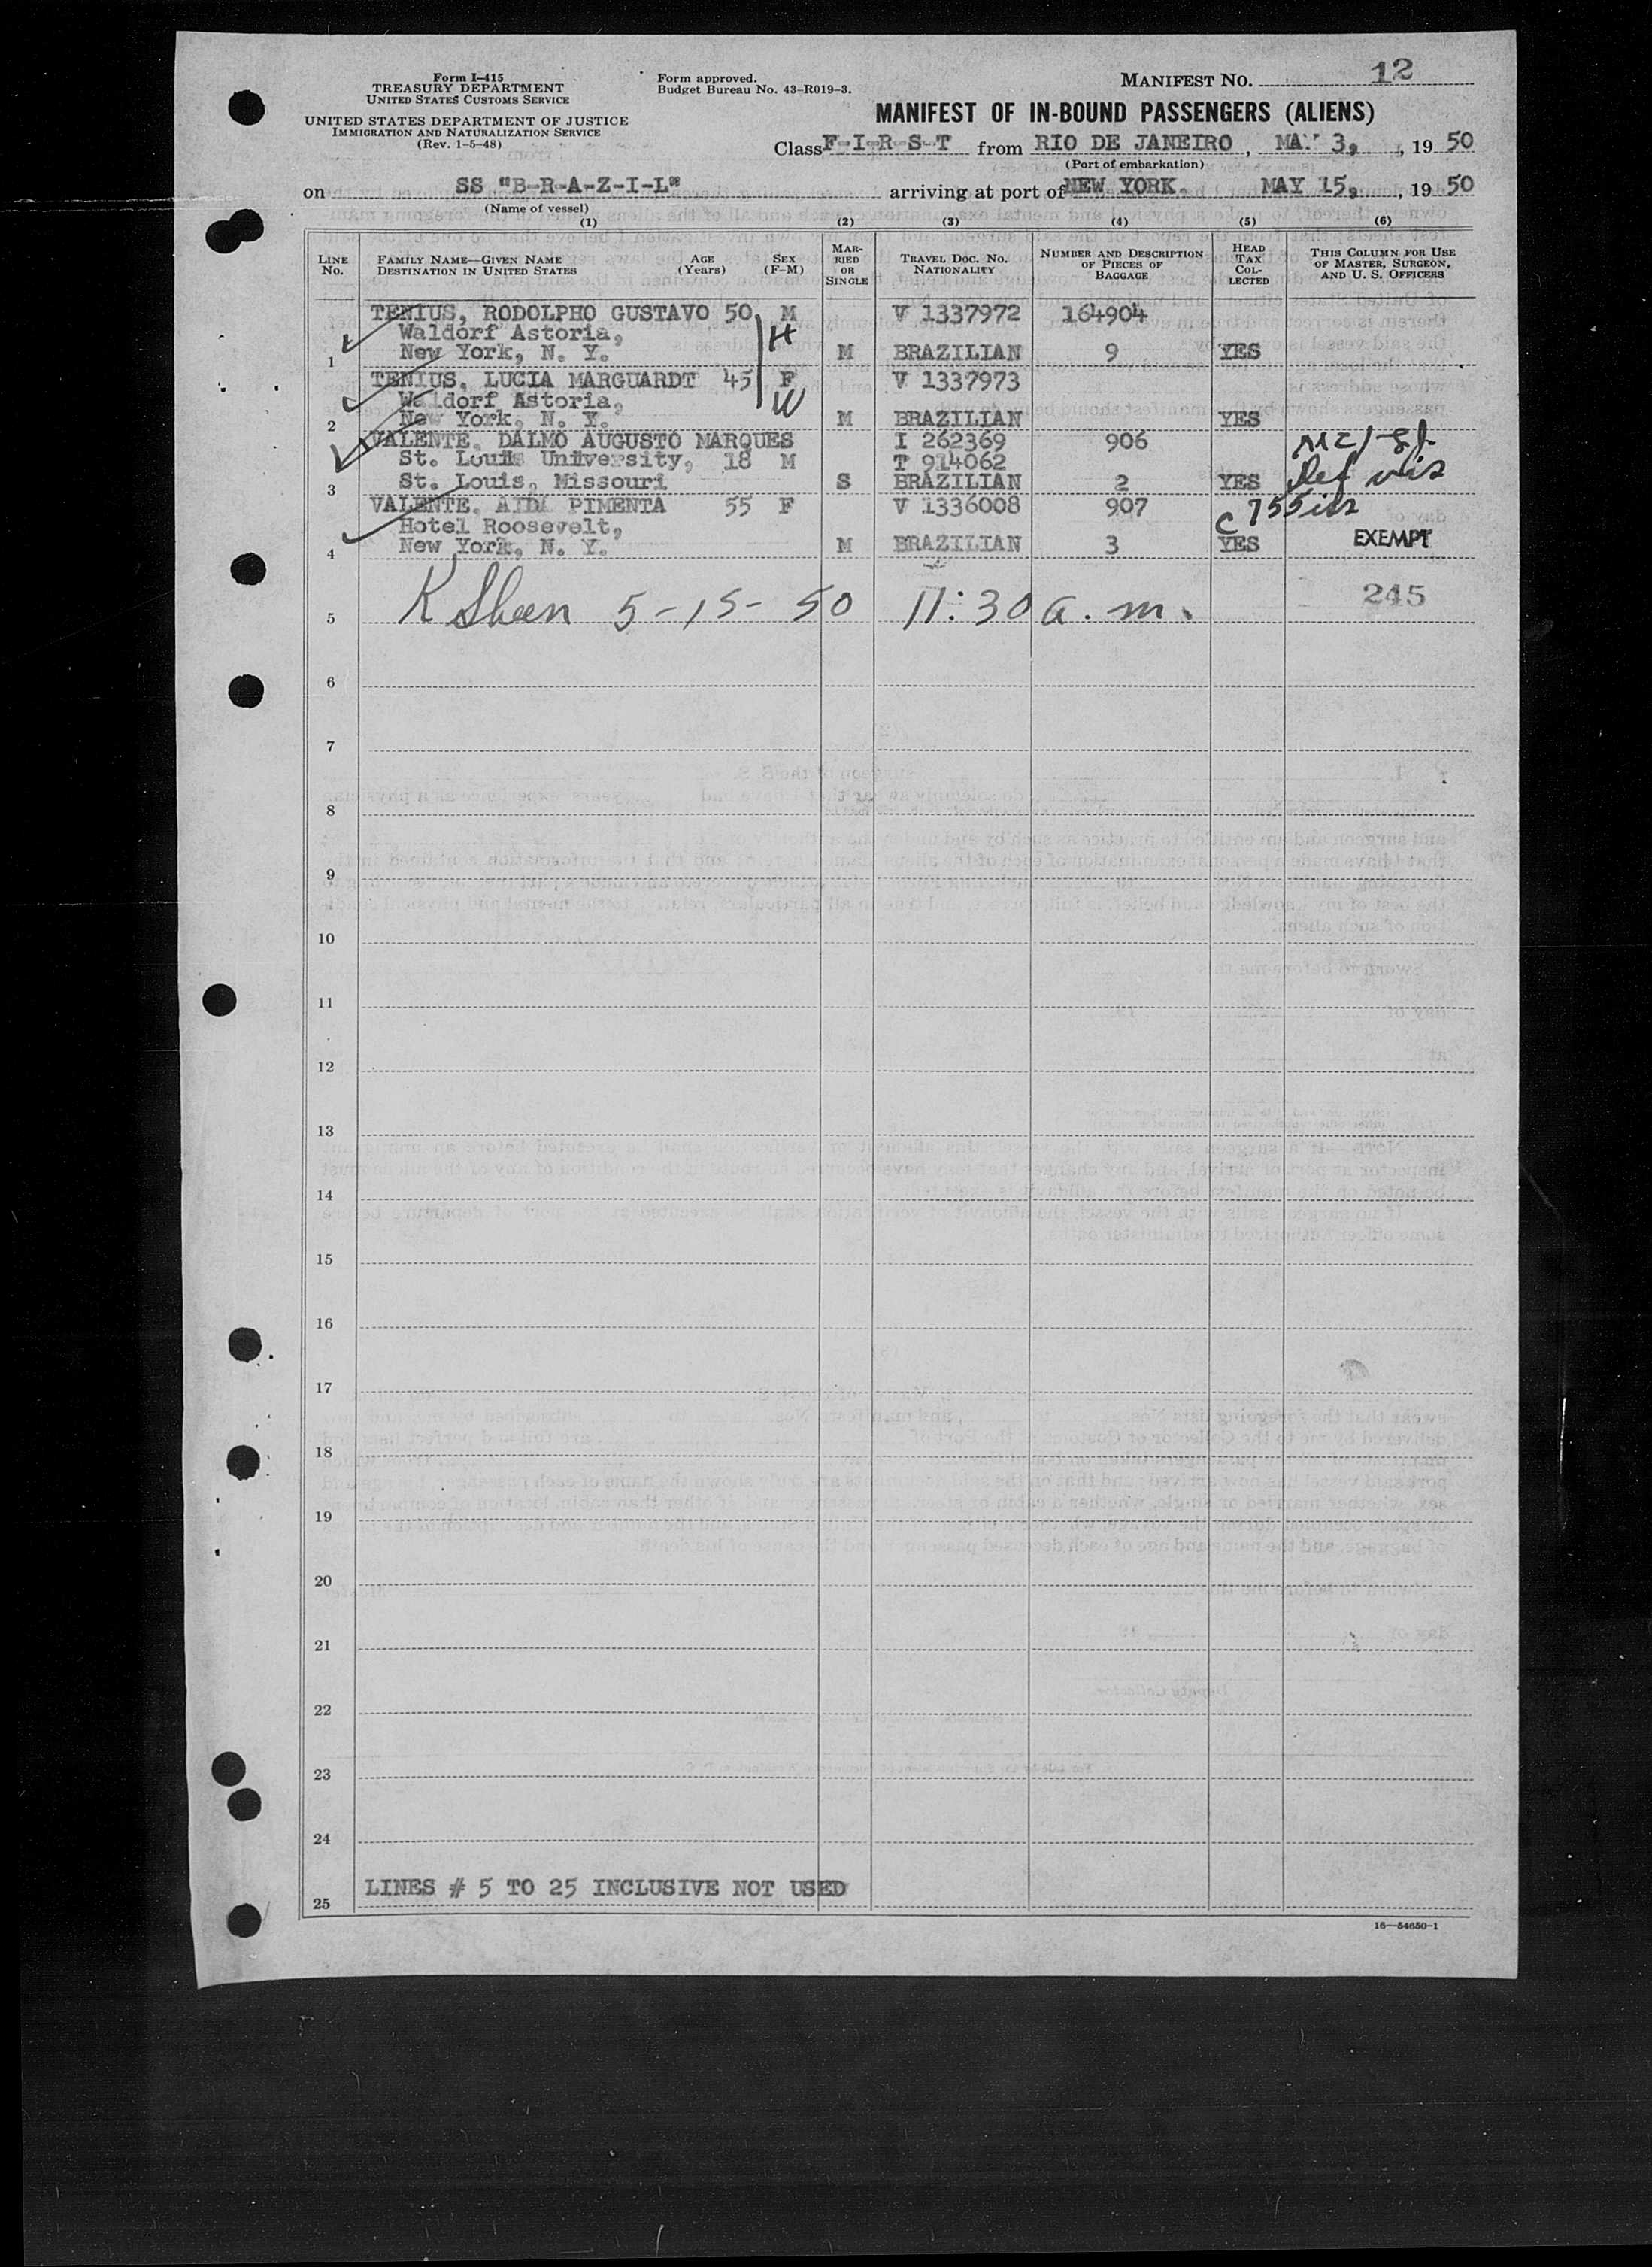 Form I-415
TREASURY DEPARTMENT
UNITED STATES CUSTOMS SERVICE
UNITED STATES DEPARTMENT OF JUSTICE
IMMIGRATION AND NATURALIZATION SERVICE
(Rev. 1-5-48)
Form approved.
Budget Bureau No. 43-R019-3.
MANIFEST NO. 12
MANIFEST OF IN-BOUND PASSENGERS (ALIENS)
Class F-I-R-S-T from RIO DE JANEIRO, MAY 3, , 19 50
(Port of embarkation)
on SS "B-R-A-Z-I-L" arriving at port of NEW YORK. MAY 15, , 19 50
(Name of vessel)
(1) (2) (3) (4) (5) (6)
LINE No. FAMILY NAME—GIVEN NAME DESTINATION IN UNITED STATES AGE (Years) SEX (F-M) MARRIED OR SINGLE TRAVEL DOC. NO. NATIONALITY NUMBER AND DESCRIPTION OF PIECES OF BAGGAGE HEAD TAX COLLECTED THIS COLUMN FOR USE OF MASTER, SURGEON, AND U. S. OFFICERS
TENIUS, RODOLPHO GUSTAVO 50 M V 1337972 164904
Waldorf Astoria, H
1 New York, N. Y. M BRAZILIAN 9 YES
TENIUS, LUCIA MARGUARDT 45 F V 1337973
Waldorf Astoria, W
2 New York, N. Y. M BRAZILIAN YES
VALENTE, DALMO AUGUSTO MARQUES I 262369 906
St. Louis University, 18 M T 914062
3 St. Louis, Missouri S BRAZILIAN 2 YES
VALENTE, AIDA PIMENTA 55 F V 1336008 907
Hotel Roosevelt, C
4 New York, N. Y. M BRAZILIAN 3 YES EXEMPT
5 K Sheen 5-15-50 11:30 a.m. 245
6
7
8
9
10
11
12
13
14
15
16
17
18
19
20
21
22
23
24
25 LINES # 5 TO 25 INCLUSIVE NOT USED
16—54650-1